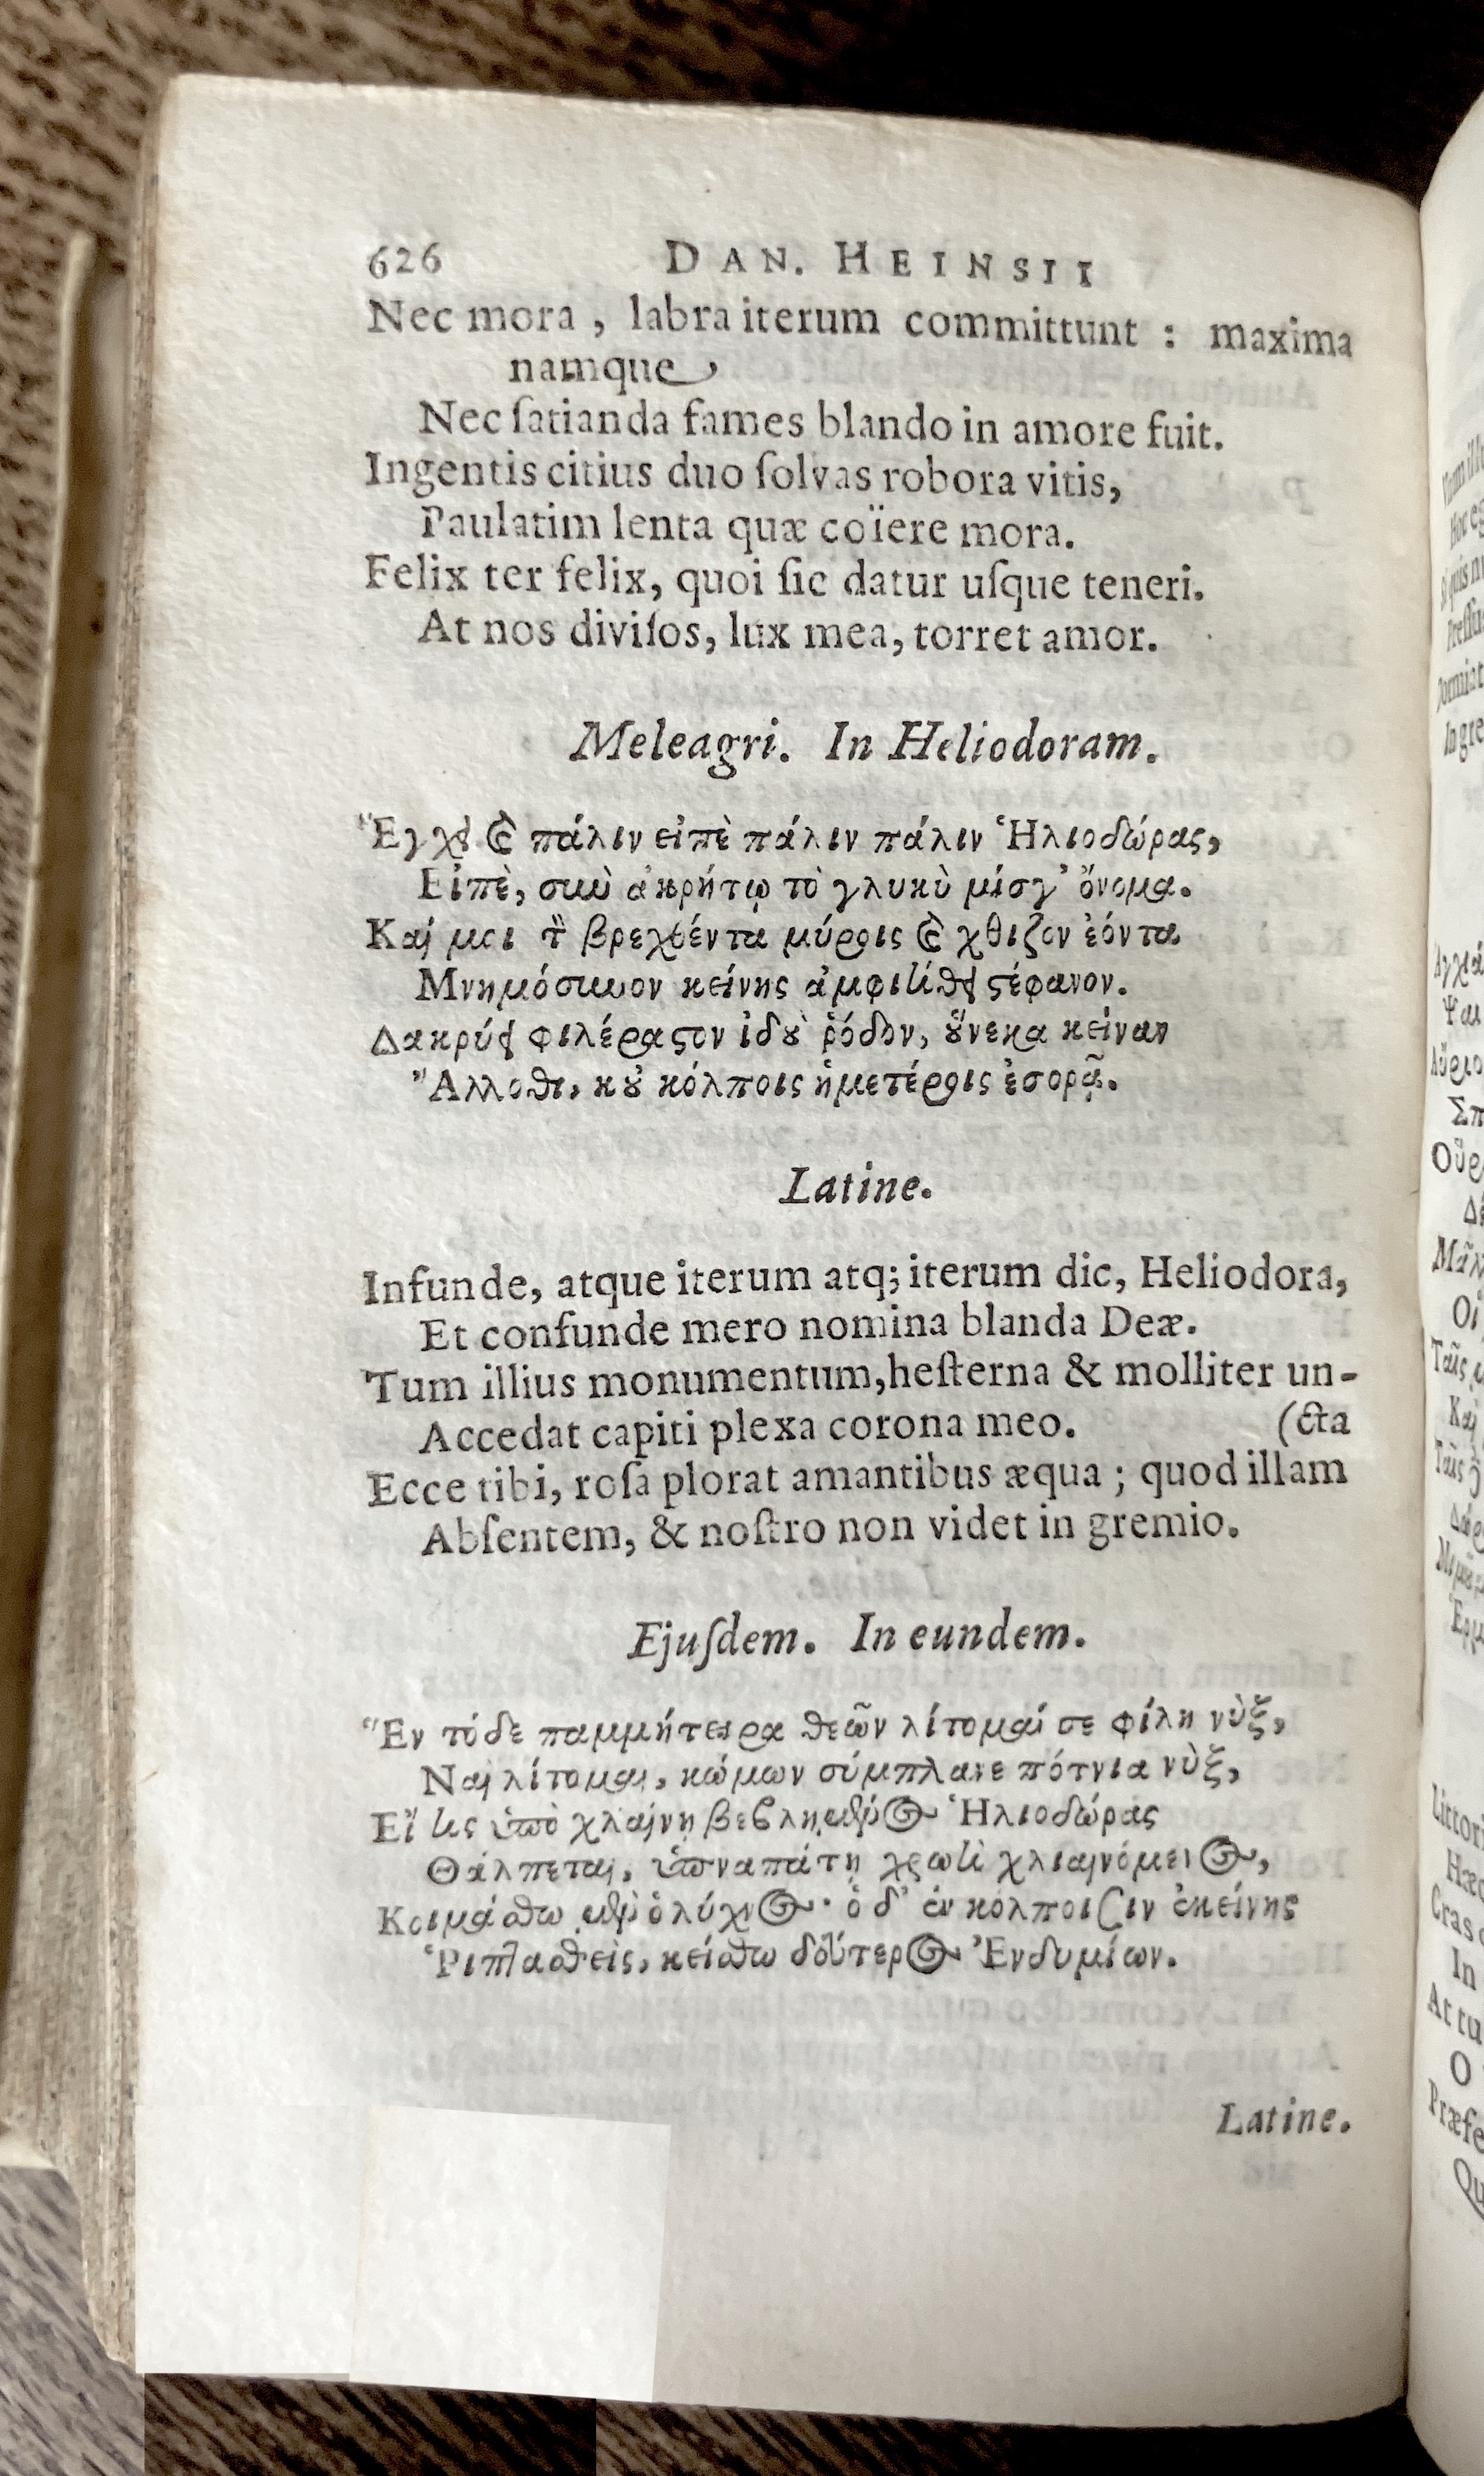 626 DAN. HEINSII
Nec mora, labra iterum committunt : maxima
namque
Nec ſatianda fames blando in amore fuit.
Ingentis citius duo ſolvas robora vitis,
Paulatim lenta quæ coïere mora.
Felix ter felix, quoi ſic datur uſque teneri.
At nos diviſos, lux mea, torret amor.
Meleagri. In Heliodoram.
Ἔγχει καὶ πάλιν εἰπὲ πάλιν πάλιν Ἡλιοδώρας,
Εἰπὲ, σὺν ἀκρήτῳ τὸ γλυκὺ μίσγ' ὄνομα.
Καί μοι τὸν βρεχθέντα μύροις καὶ χθιζον ἐόντα
Μνημόσυνον κείνης ἀμφιτίθει ϛέφανον.
Δακρύει φιλέραϛον ἰδοὺ ῥόδον, οὕνεκα κείναν
Ἄλλοθι, κοὐ κόλποις ἡμετέροις ἐσορᾷ.
Latine.
Infunde, atque iterum atq; iterum dic, Heliodora,
Et confunde mero nomina blanda Deæ.
Tum illius monumentum, heſterna & molliter un-
Accedat capiti plexa corona meo. (cta
Ecce tibi, roſa plorat amantibus æqua ; quod illam
Abſentem, & noſtro non videt in gremio.
Ejuſdem. In eundem.
Ἓν τόδε παμμήτειρα θεῶν λίτομαί σε φίλη νὺξ,
Ναὶ λίτομαι, κώμων σύμπλανε πότνια νὺξ,
Εἴ τις ὑπὸ χλαίνῃ βεβλημένος Ἡλιοδώρας
Θάλπεται, ὑπναπάτῃ χρωτὶ χλιαινόμενος,
Κοιμάσθω μὲν ὁ λύχνος· ὁ δ' ἐν κόλποισιν ἐκείνης
Ῥιπτασθεὶς, κείσθω δεύτερος Ἐνδυμίων.
Latine.